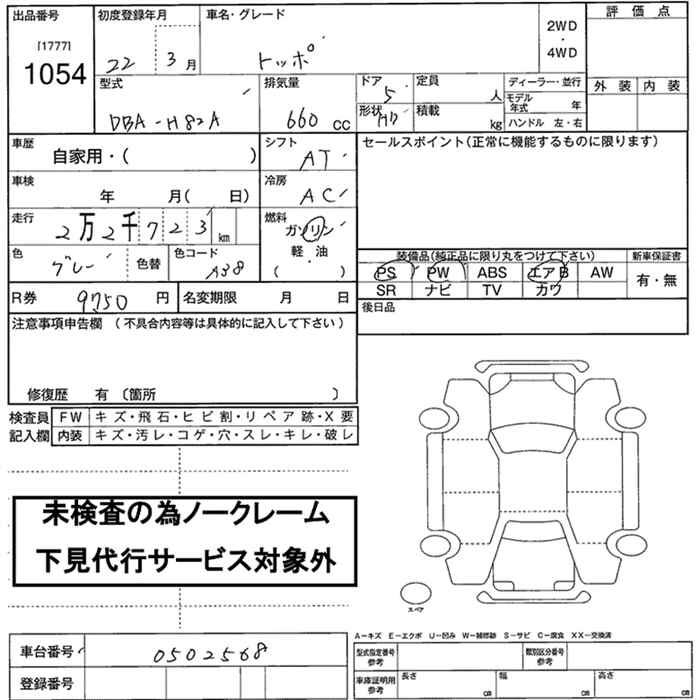 出品番号 初度登録年月 車名・グレード 2WD 評価点
[1777] ・
1054 22 3月 トッポ 4WD
型式 排気量 ドア 定員 ディーラー・並行 外装 内装
5 人 モデル年式 年
DBA-H82A 660 cc 形状 積載 kg ハンドル 左・右
車歴 シフト セールスポイント(正常に機能するものに限ります)
自家用・( ) AT
車検 冷房
年 月( 日) AC
走行 燃料
2万2千723 km ガソリン
色 色替 色コード 軽油 装備品(純正品に限り丸をつけて下さい) 新車保証書
グレー A38 ( ・ ) PS PW ABS エアB AW 有・無
R券 9750 円 名変期限 月 日 SR ナビ TV カワ
注意事項申告欄 (不具合内容等は具体的に記入して下さい) 後日品
修復歴 有 〔箇所 〕
検査員 FW キズ・飛石・ヒビ割・リペア跡・X要
記入欄 内装 キズ・汚レ・コゲ・穴・スレ・キレ・破レ
未検査の為ノークレーム
下見代行サービス対象外
スペア
A-キズ E-エクボ U-凹み W-補修跡 S-サビ C-腐食 XX-交換済
車台番号 0502568 型式指定番号 参考 類別区分番号 参考
登録番号 車庫証明用 参考 長さ cm 幅 cm 高さ cm